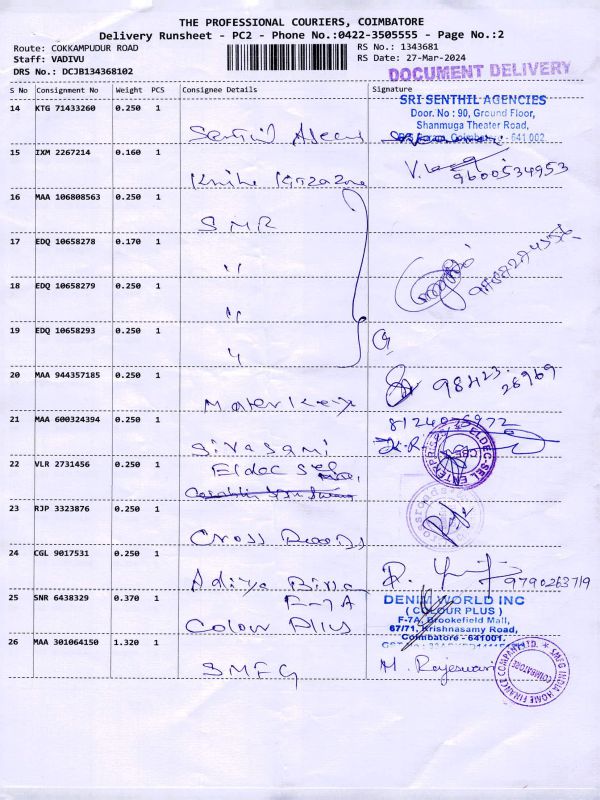 THE PROFESSIONAL COURIERS, COIMBATORE
Delivery Runsheet - PC2 - Phone No.:0422-3505555 - Page No.:2
Route: COKKAMPUDUR ROAD
Staff: VADIVU
DRS No.: DCJB134368102
RS No.: 1343681
RS Date: 27-Mar-2024
DOCUMENT DELIVERY
S No Consignment No Weight PCS Consignee Details Signature
14 KTG 71433260 0.250 1
SRI SENTHIL AGENCIES
Door. No : 90, Ground Floor,
Shanmuga Theater Road,
Coimbatore - 641 002
Senthil
15 IXM 2267214 0.160 1
9600534953
16 MAA 106808563 0.250 1
SMR
17 EDQ 10658278 0.170 1
"
18 EDQ 10658279 0.250 1
"
19 EDQ 10658293 0.250 1
"
20 MAA 944357185 0.250 1
98423.
26969
21 MAA 600324394 0.250 1
8124075972
Sivasami
22 VLR 2731456 0.250 1
Eldec Sel
ELDEC-SEL ENTERPRISES
CBE
23 RJP 3323876 0.250 1
Cross Roads
24 CGL 9017531 0.250 1
Aditya Birla
9790263719
25 SNR 6438329 0.370 1
F-7A
Colour Plus
DENIM WORLD INC
( COLOUR PLUS )
F-7A, Brookefield Mall,
67/71, Krishnasamy Road,
Coimbatore - 641001.
26 MAA 301064150 1.320 1
SMFG
M. Rajeswari
SMFG INDIA HOME FINANCE COMPANY LTD.
COIMBATORE